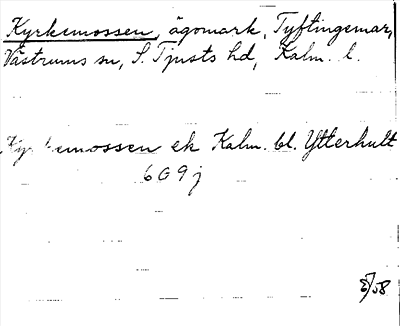 Kyrkemossen, ägomark, Tyftingemar,
Västrums sn, S. Tjusts hd, Kalm. l.
Kyrkemossen ek Kalm. bl. Ytterhult
609j